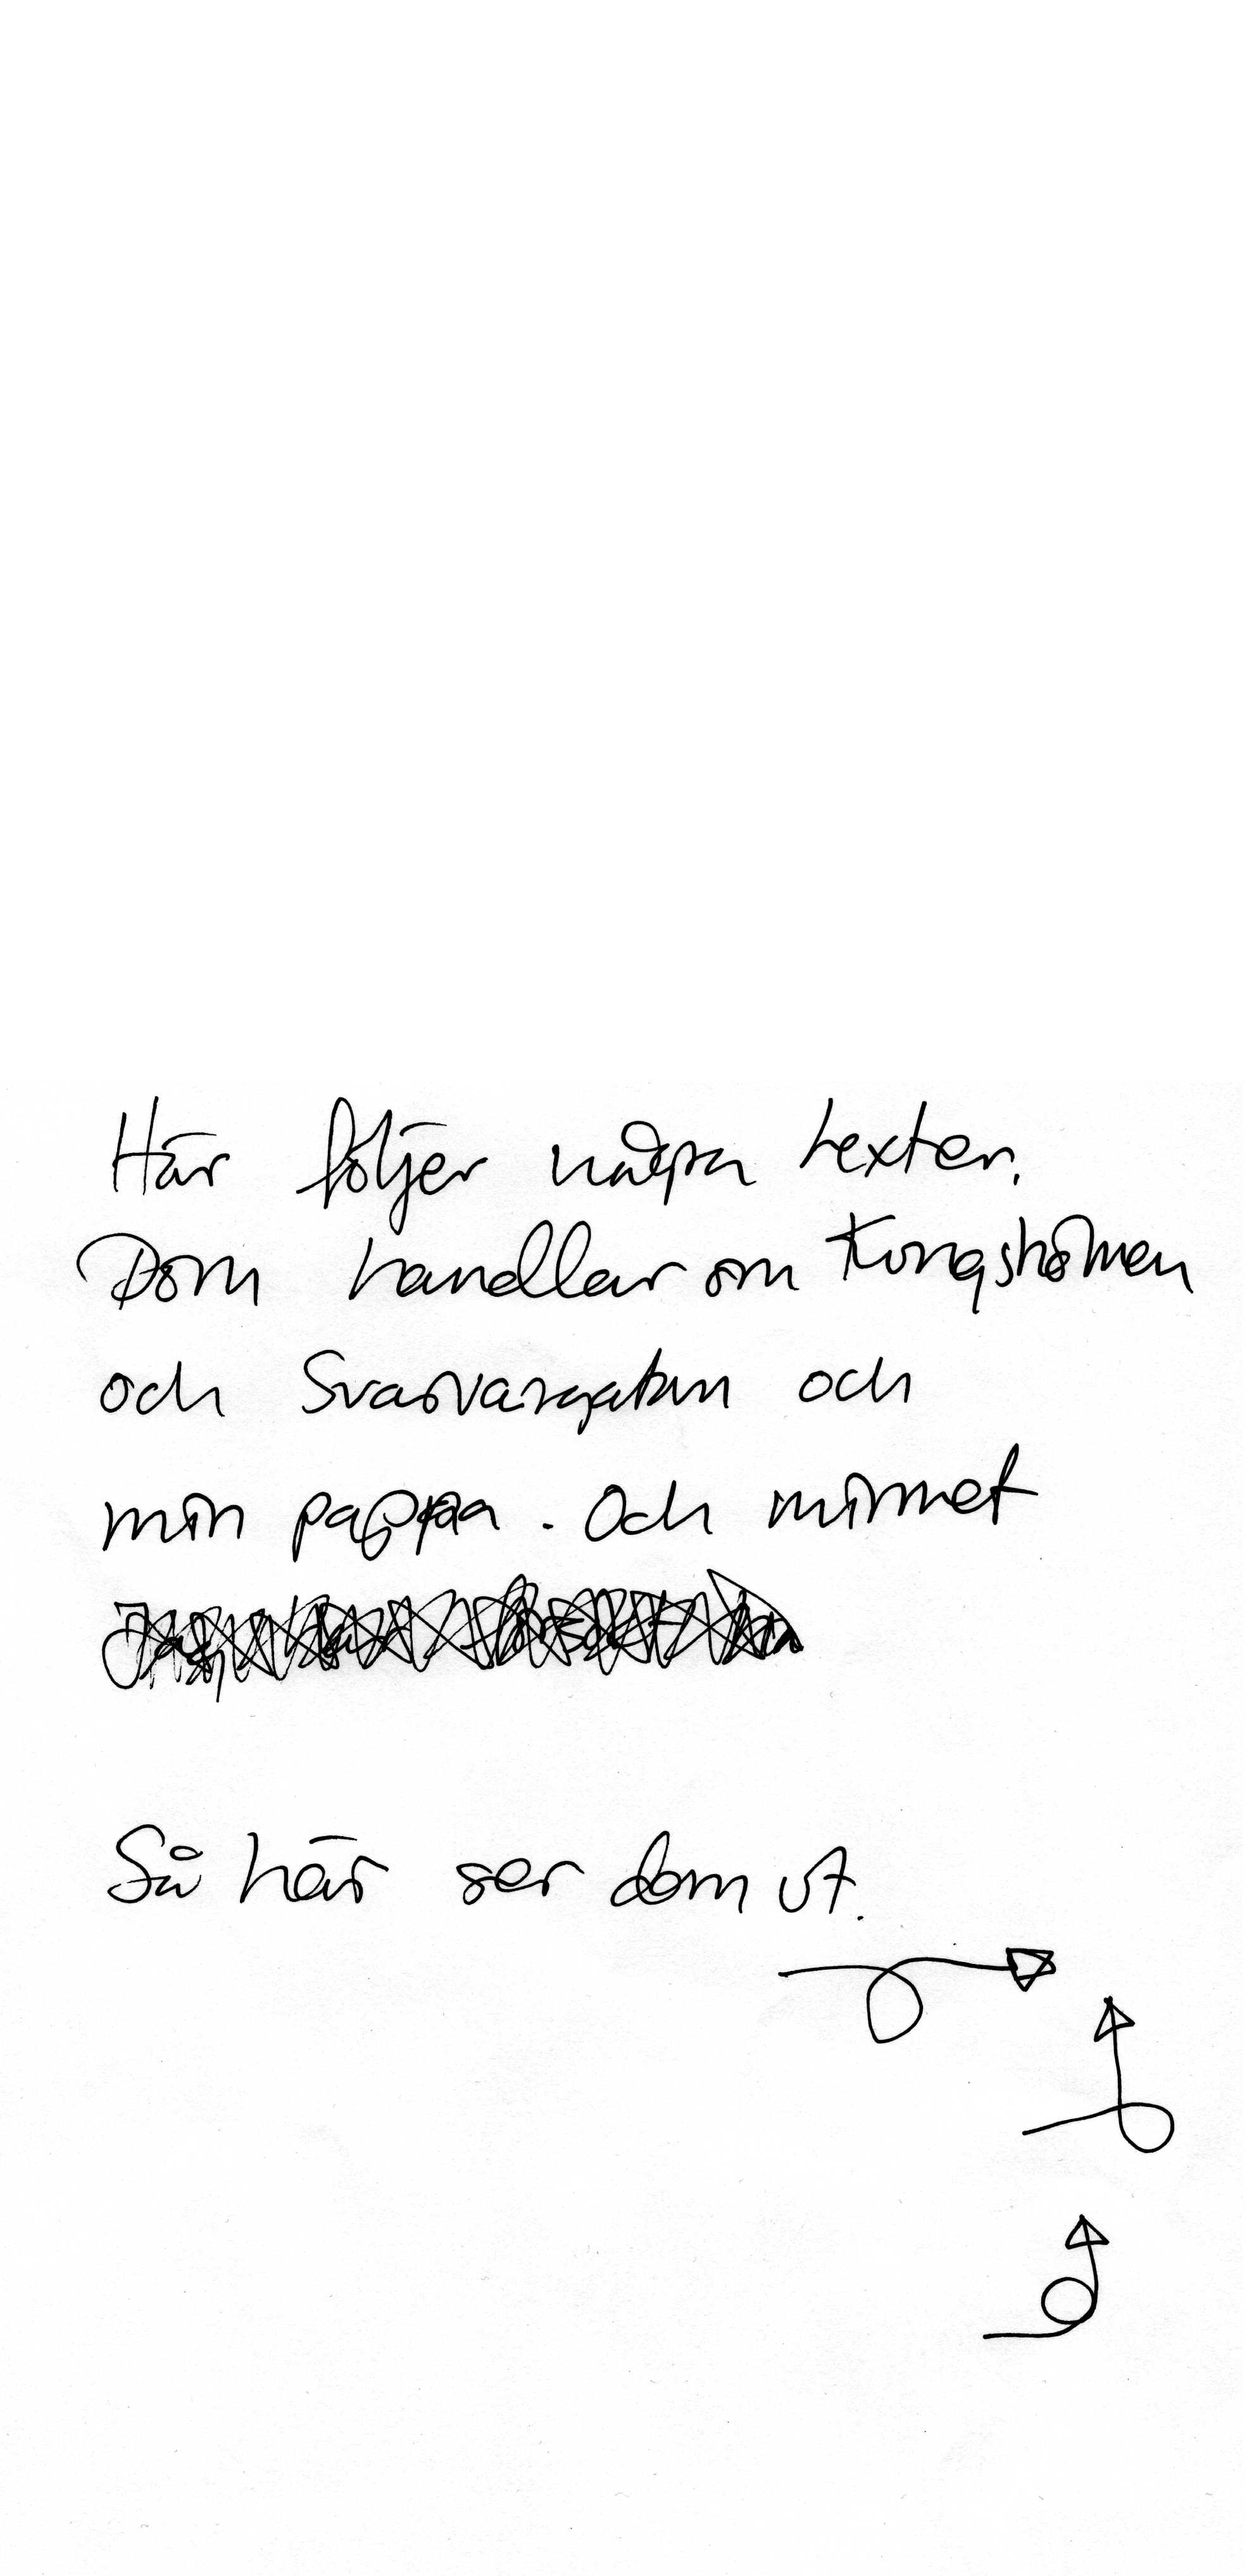 Här följer några texter.
Dom handlar om Kungsholmen
och Svarvargatan och
min pappa. Och minnet
Så här ser dom ut.